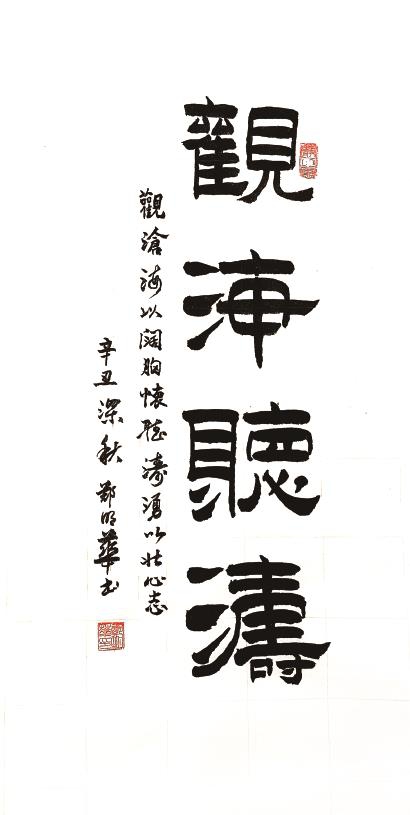 觀海聽濤
觀滄海以闊胸懷聽濤湧以壯心志
辛丑深秋鄭明華書